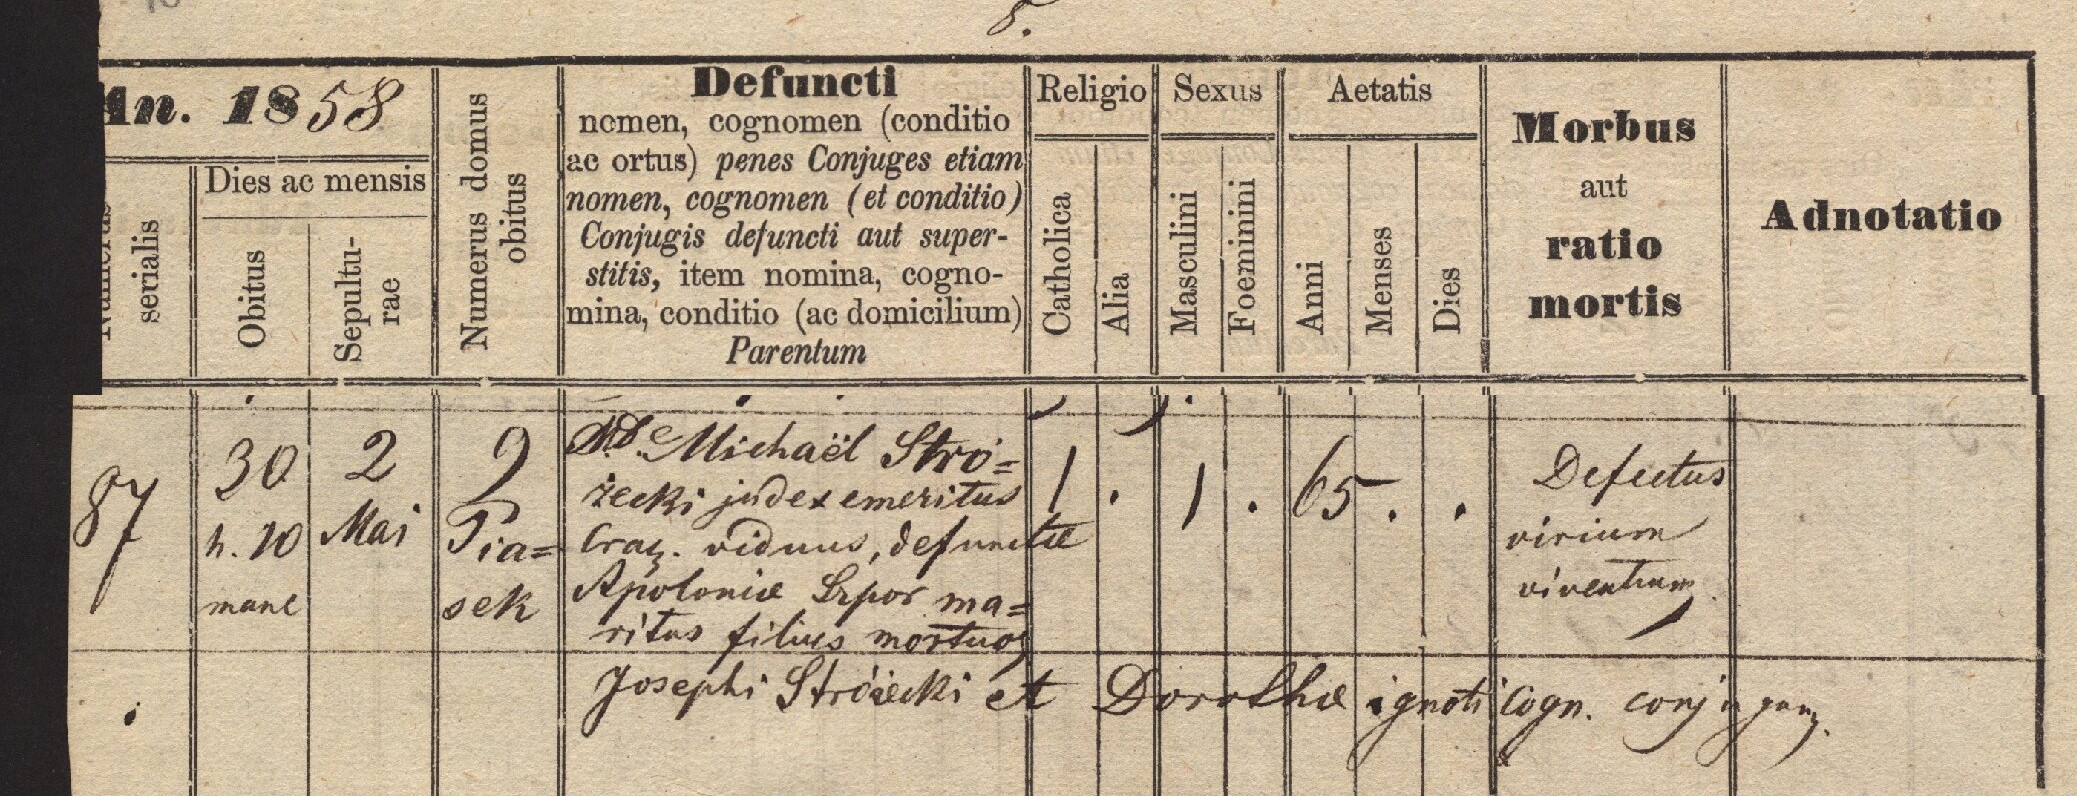 8.
An. 1858
Numerus serialis
Dies ac mensis
Obitus
Sepultu-
rae
Numerus domus
obitus
Defuncti
nomen, cognomen (conditio
ac ortus) penes Conjuges etiam
nomen, cognomen (et conditio)
Conjugis defuncti aut super-
stitis, item nomina, cogno-
mina, conditio (ac domicilium)
Parentum
Religio
Catholica
Alia
Sexus
Masculini
Foeminini
Aetatis
Anni
Menses
Dies
Morbus
aut
ratio
mortis
Adnotatio
87
30
h. 10
mane
2
Mai
9
Pia=
sek
Michaël Stró=
żecki judex emeritus
Crac. viduus, defunctæ
Apoloniæ Szpor ma=
ritus filius mortuor
Josephi Stróżecki et Dorothæ ignoti cogn. conjugum.
1 . 1 . 65 . .
Defectus
virium
viventium